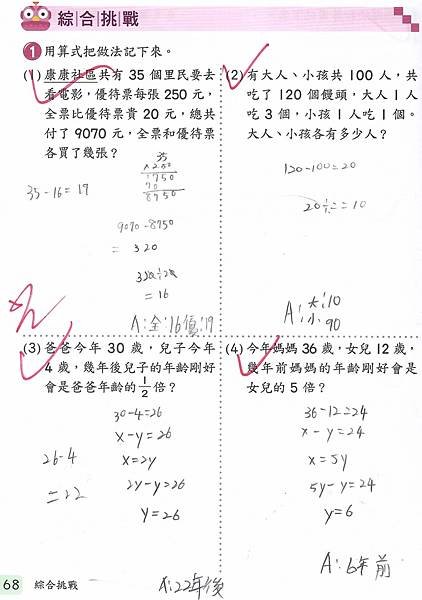 綜合挑戰
1 用算式把做法記下來。
(1) 康康社區共有 35 個里民要去
看電影，優待票每張 250 元，
全票比優待票貴 20 元，總共
付了 9070 元，全票和優待票
各買了幾張？
35
×250
1750
70
8750
35-16=19
9070-8750
= 320
320÷20
=16
A:全:16優:19
(2) 有大人、小孩共 100 人，共
吃了 120 個饅頭，大人 1 人
吃 3 個，小孩 1 人吃 1 個。
大人、小孩各有多少人？
120-100=20
20÷2=10
A:大:10
小:90
(3) 爸爸今年 30 歲，兒子今年
4 歲，幾年後兒子的年齡剛好
會是爸爸年齡的 1/2 倍？
30-4=26
x-y=26
x=2y
2y-y=26
y=26
26-4
=22
A:22年後
(4) 今年媽媽 36 歲，女兒 12 歲，
幾年前媽媽的年齡剛好會是
女兒的 5 倍？
36-12=24
x-y=24
x=5y
5y-y=24
y=6
A:6年前
68 綜合挑戰